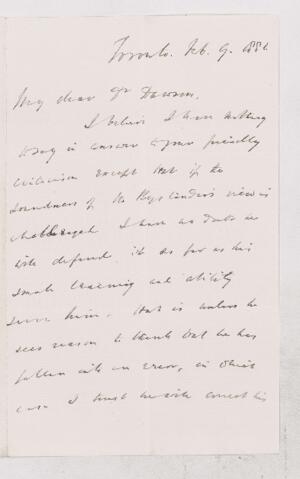 Toronto. Feb. 9. 188
My dear Dr Dawson.
I believe I have nothing
to say in answer to your friendly
criticism except that if the
soundness of the Bystander's view is
challenged I have no doubt he
will defend it as far as his
small learning and ability
serve him. that is unless he
sees reason to think that he has
fallen into an error, in which
case I trust he will correct his